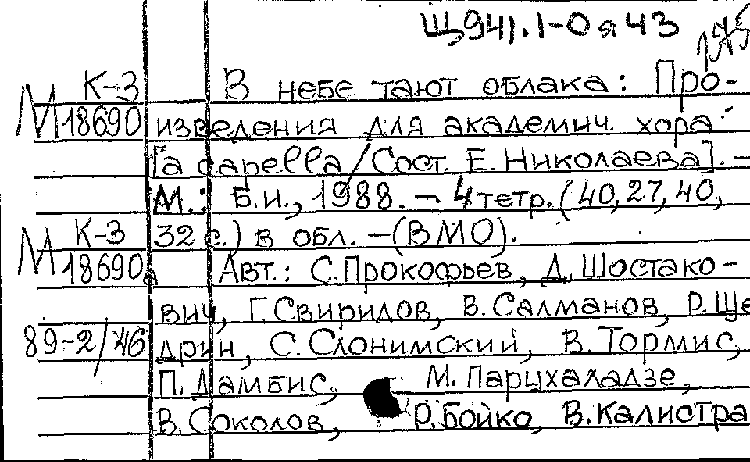 Щ941.1-0я43
К-3 В небе тают облака: Про-
М 18690 изведения для академич. хора
[a capella / Сост. Е. Николаева]. -
М.: Б.и., 1988. - 4 тетр. (40, 27, 40,
К-3 32 с.) в обл. - (ВМО).
М 18690а Авт.: С. Прокофьев, Д. Шостако-
вич, Г. Свиридов, В. Салманов, Р. Ще
89-2/46 дрин, С. Слонимский, В. Тормис,
П. Дамбис, М. Парцхаладзе,
В. Соколов, Р. Бойко, В. Калистра